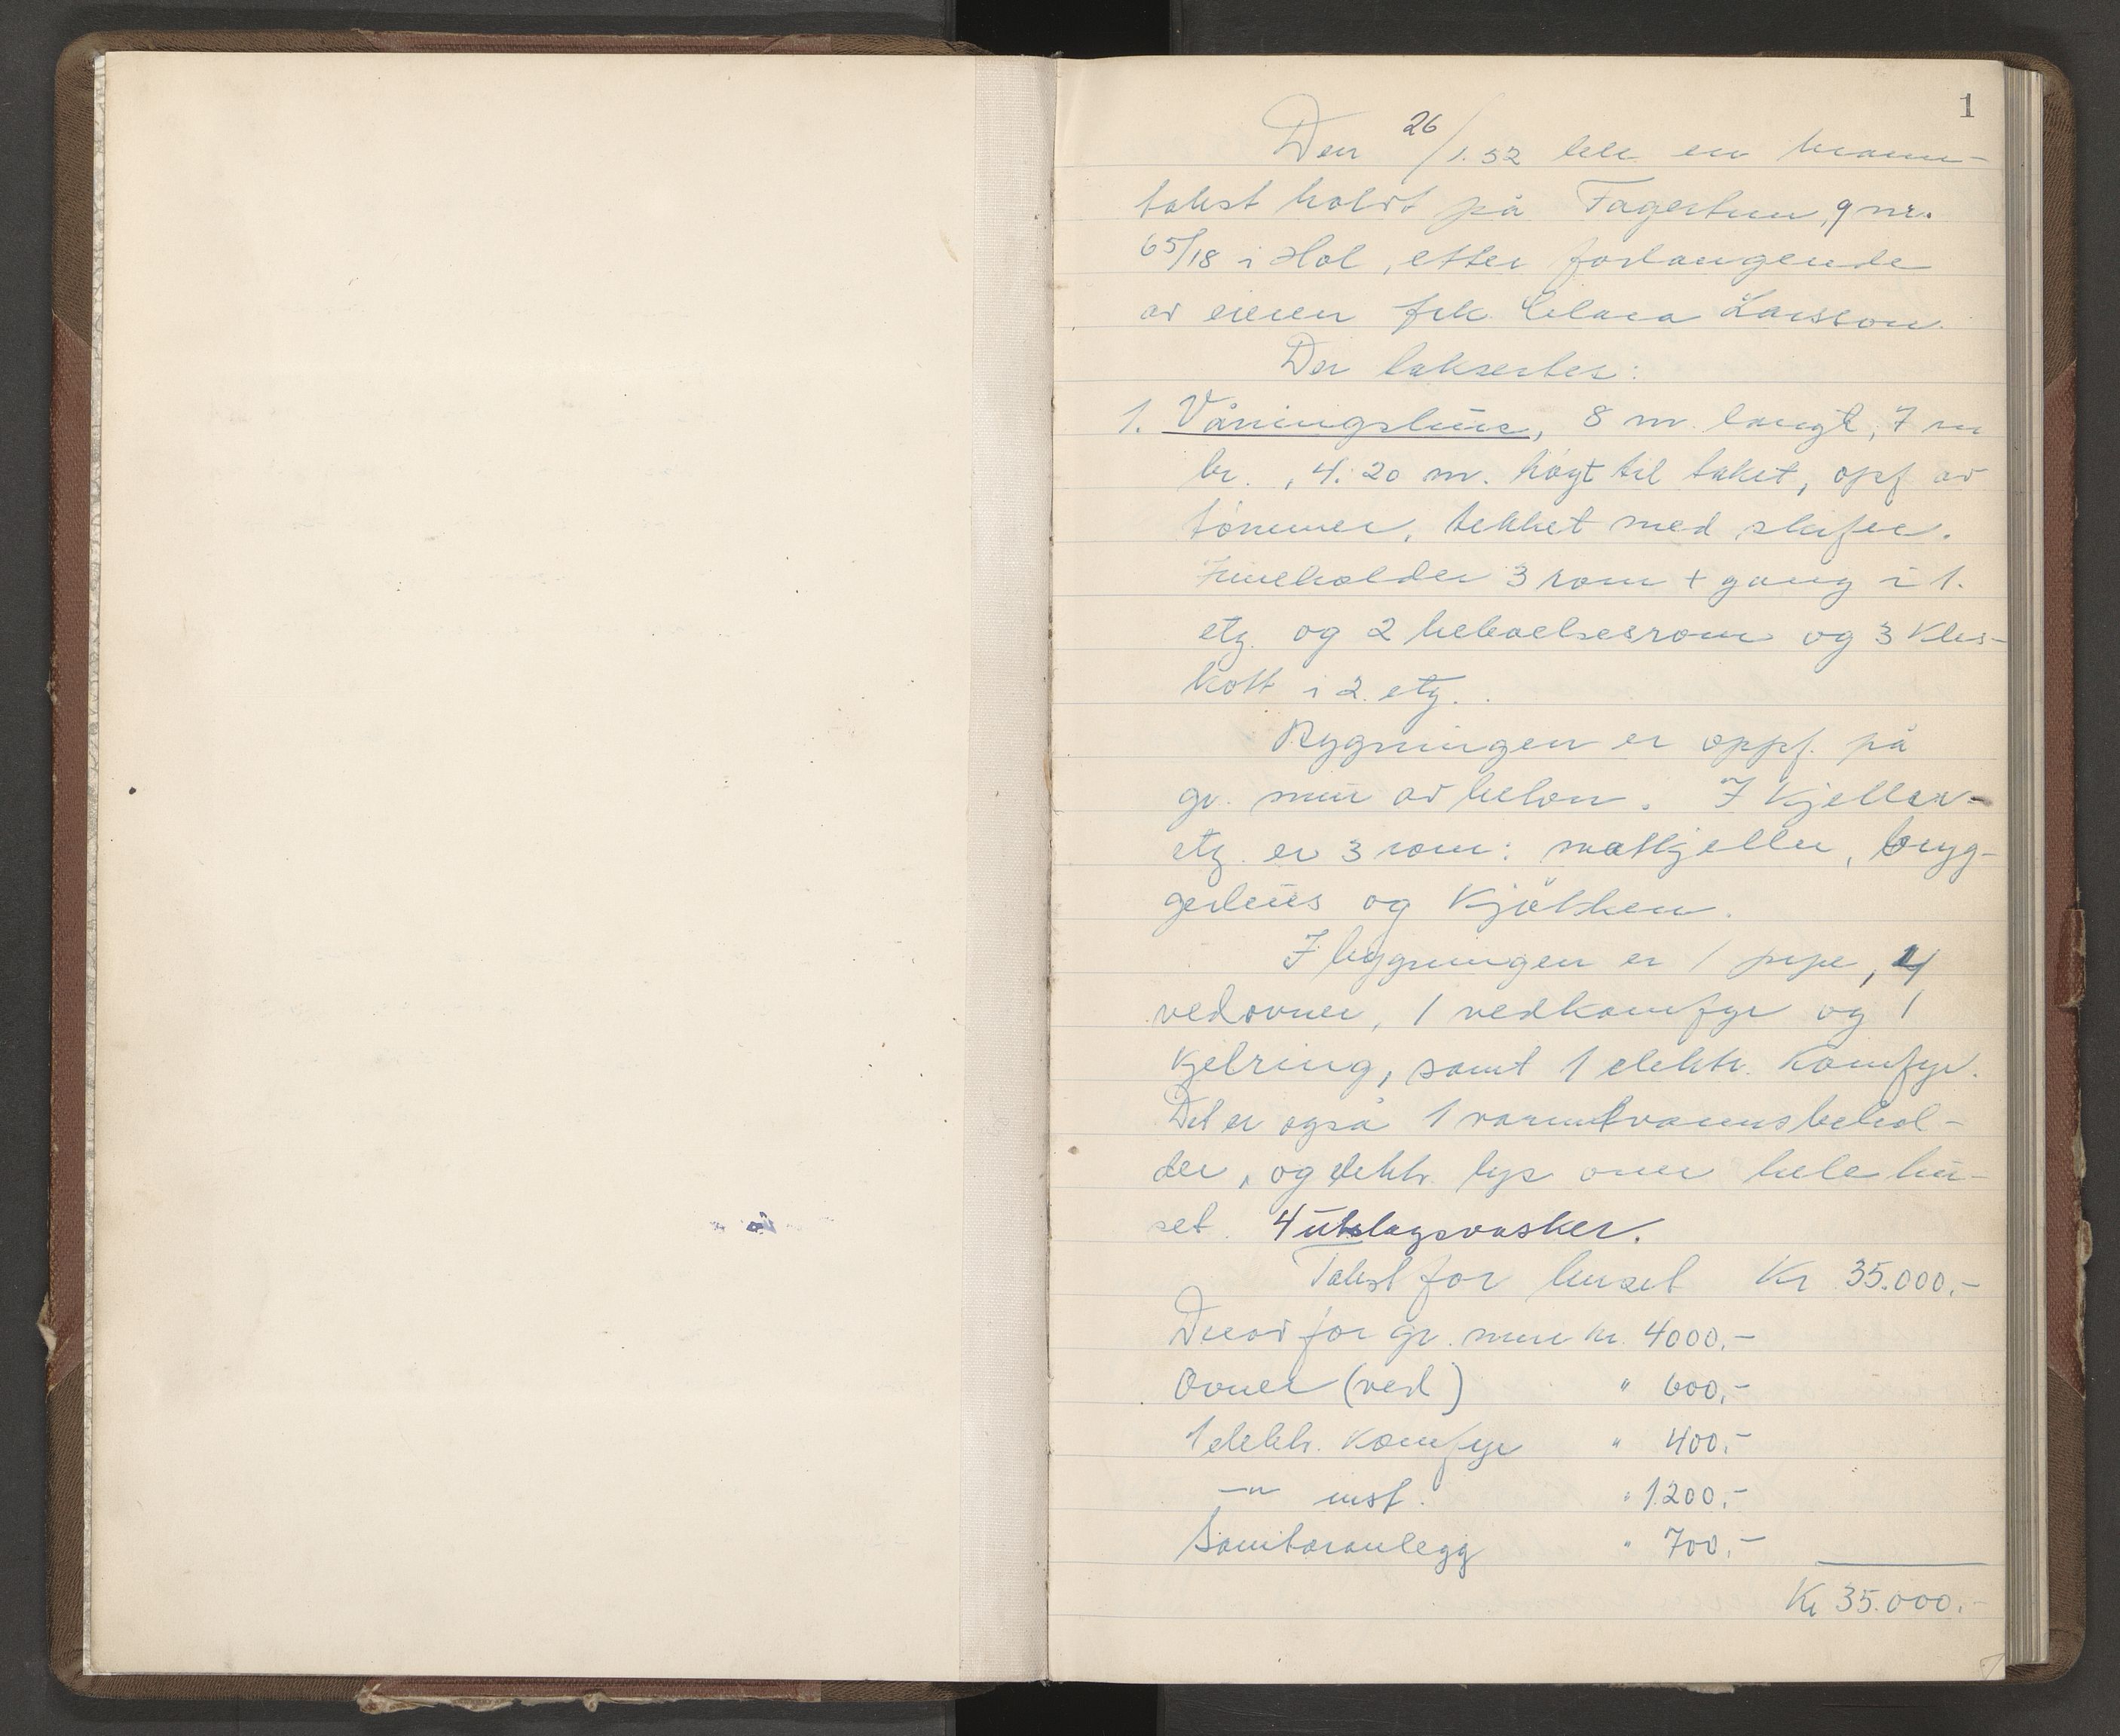 1
Den 26/1.52 ble en brann-
takst holdt på Fagertun, gnr.
65/18 i Hol, etter forlangende
av eieren frk. Clara Larsson.
Der taksertes:
1. Våningshus, 8 m. langt, 7 m
br., 4.20 m. høgt til taket, opf av
tømmer, tekket med skifer.
Inneholder 3 rom + gang i 1.
etg. og 2 beboelsesrom og 3 kles-
kott i 2. etg.
Bygningen er oppf. på
gr. mur av beton. I kjeller-
etg. er 3 rom: matkjeller, bryg-
gerhus og kjøkken.
I bygningen er 1 pipe, 4
vedovner, 1 vedkomfyr og 1
kjelring, samt 1 elektr. komfyr.
Det er også 1 varmtvannsbehol-
der, og elektr. lys over hele hu-
set. 4 utslagsvasker.
Takst for huset Kr 35.000.-
Derav for gr. mur kr. 4000.-
Ovner (ved) " 600.-
1 elektr. komfyr " 400.-
—"— inst. " 1200.-
Sanitæranlegg " 700.-
Kr 35.000.-